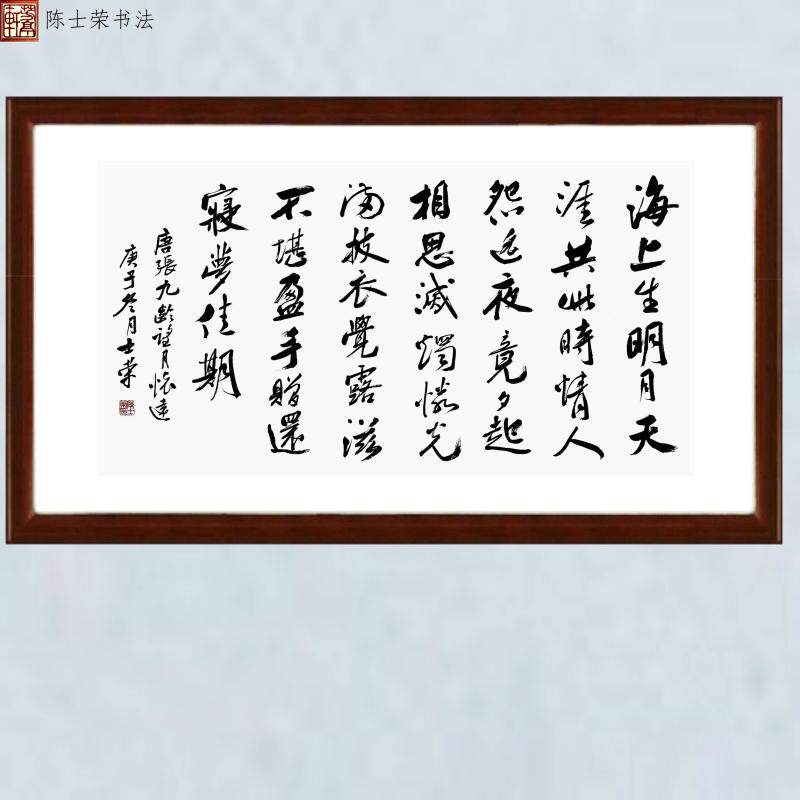 陈士荣书法
海上生明月天
涯共此時情人
怨遥夜竟夕起
相思滅燭憐光
滿披衣覺露滋
不堪盈手贈還
寢夢佳期
唐張九齡望月懷遠
庚子冬月士荣